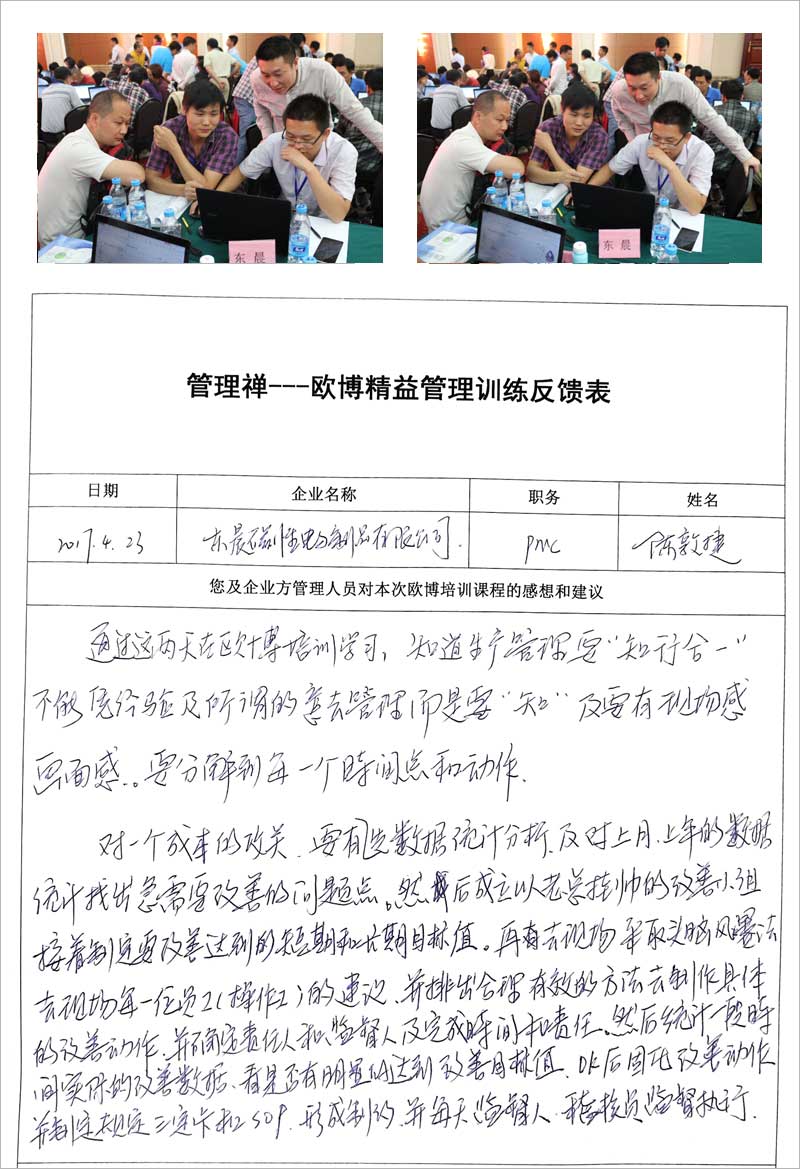 东 晨
东 晨
管理禅---欧博精益管理训练反馈表
日期 企业名称 职务 姓名
2017.4.23 东晨磁性电子制品有限公司. PMC 陈敦捷
您及企业方管理人员对本次欧博培训课程的感想和建议
通过这两天在欧博培训学习, 知道生产管理要"知行合一"
不能凭经验及所谓的意去管理而是要"知"及要有现场感
画面感。要分解到每一个时间点和动作.
对一个成本的攻关. 要有先数据统计分析. 及对上月. 上年的数据
统计找出急需要改善的问题点。然后成立以老总挂帅的改善小组
接着制定要改善达到的短期和长期目标值。再有去现场采取头脑风暴法
去现场每一位员工(操作工)的建议. 并排出合理有效的方法去制作具体
的改善动作. 并确定责任人和监督人及完成时间和责任. 然后统计一段时
间实际的改善数据. 看是否有明显的达到改善目标值. OK后固化改善动作
并制定规定三定卡和SOP. 形成制约. 并每天监督人. 稽核员监督执行.